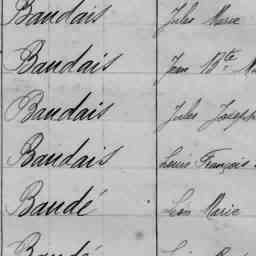 Baudais Jules Marie
Baudais Jean Bte M
Baudais Jules Joseph
Baudais Louis François
Baudé Léon Marie
Baudé